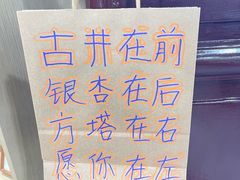 古井在前
银杏在后
方塔在右
愿你在左